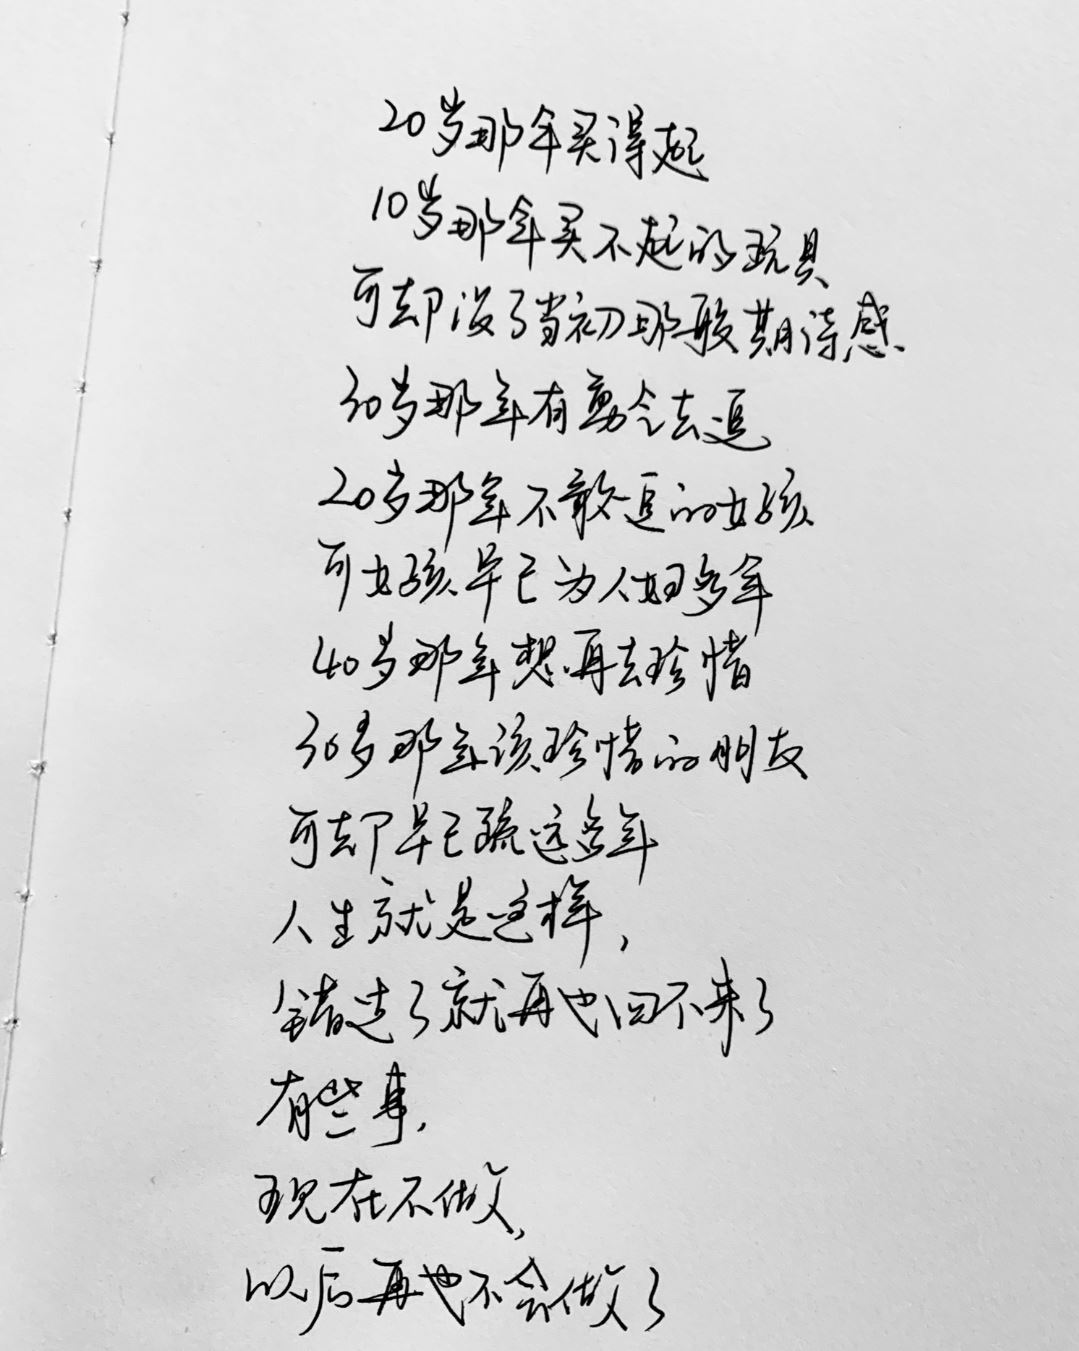 20岁那年买得起
10岁那年买不起的玩具
可却没了当初那般期待感
30岁那年有勇气去追
20岁那年不敢追的女孩
可女孩早已为人妇多年
40岁那年想再去珍惜
30岁那年该珍惜的朋友
可却早已疏远多年
人生就是这样,
错过了就再也回不来了
有些事,
现在不做,
以后再也不会做了